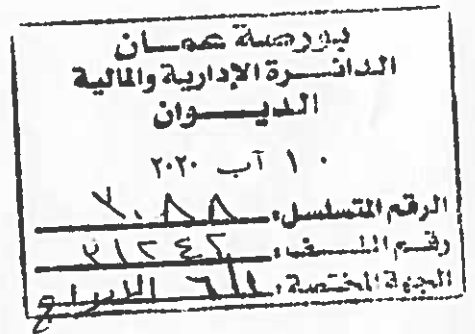 بورصة عمان
الدائرة الإدارية والمالية
الديوان
١٠ آب ٢٠٢٠
الرقم المتسلسل: ٣٠٨٨
رقم الملف: ٣١٢٤٢
الجهة المختصة: الإدراج